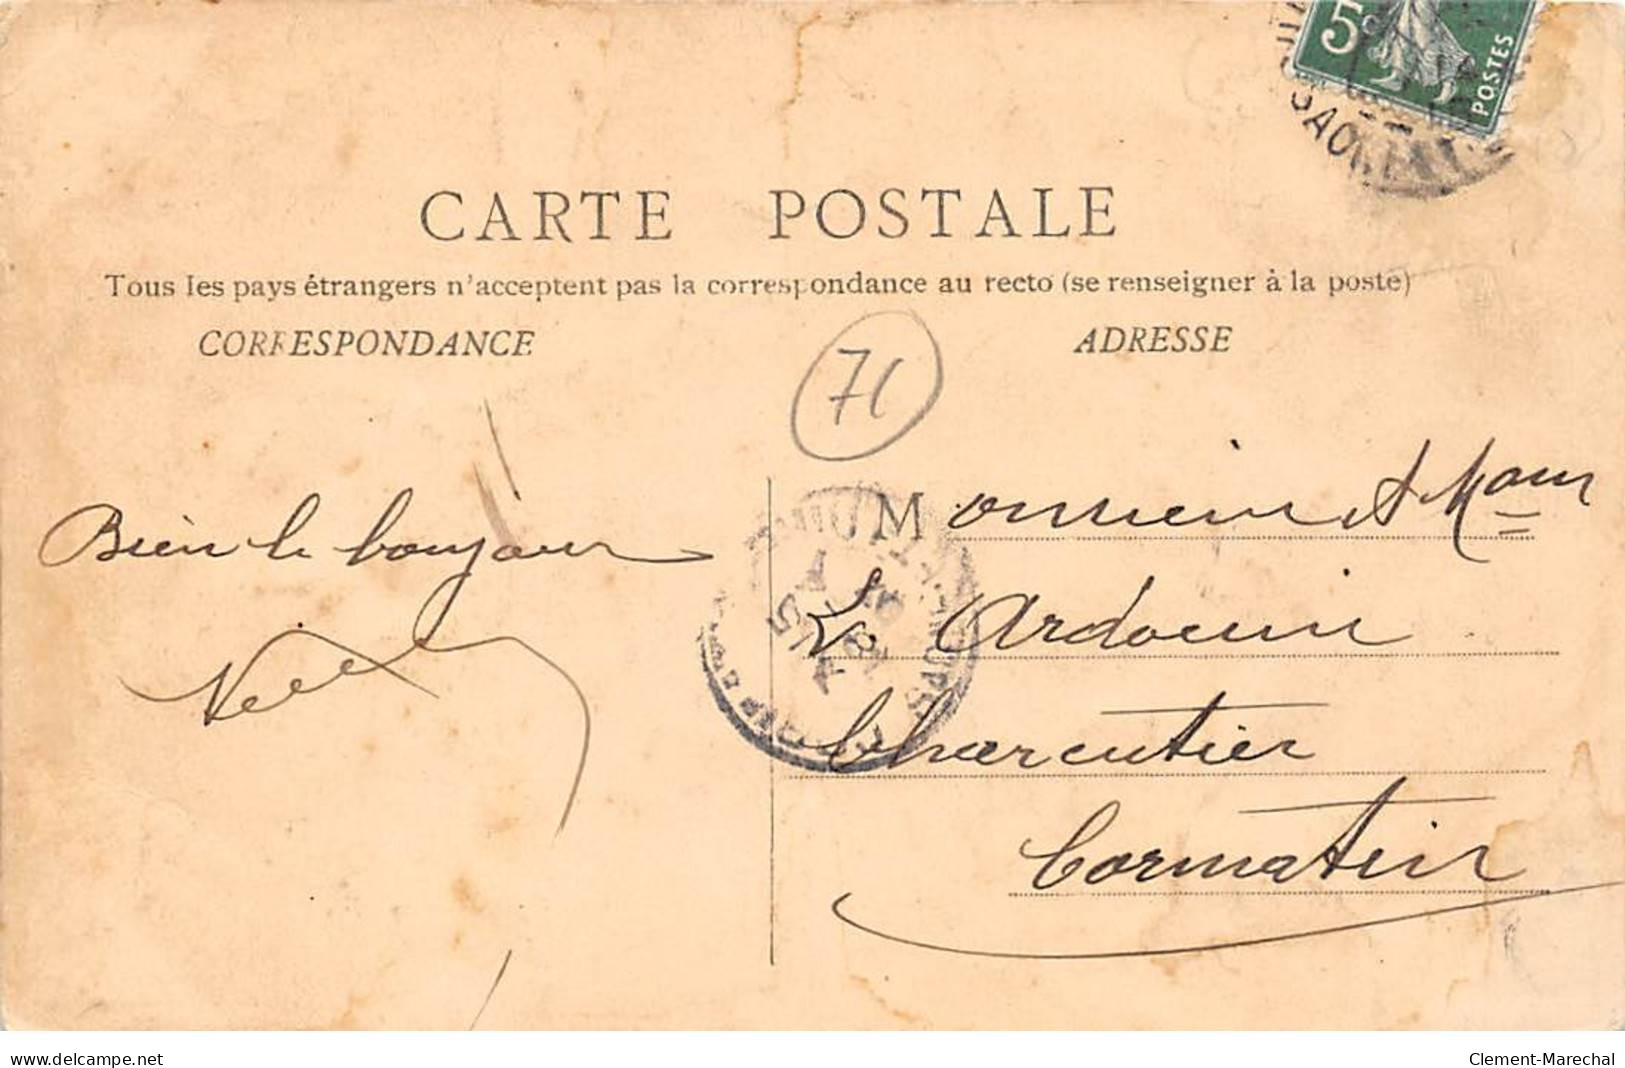 5c
POSTES
CARTE POSTALE
Tous les pays étrangers n'acceptent pas la correspondance au recto (se renseigner à la poste)
CORRESPONDANCE
ADRESSE
71
Bien le bonjour
Monsieur &
L. Ardouin
Charcutier
Cormatin
www.delcampe.net
Clement-Marechal